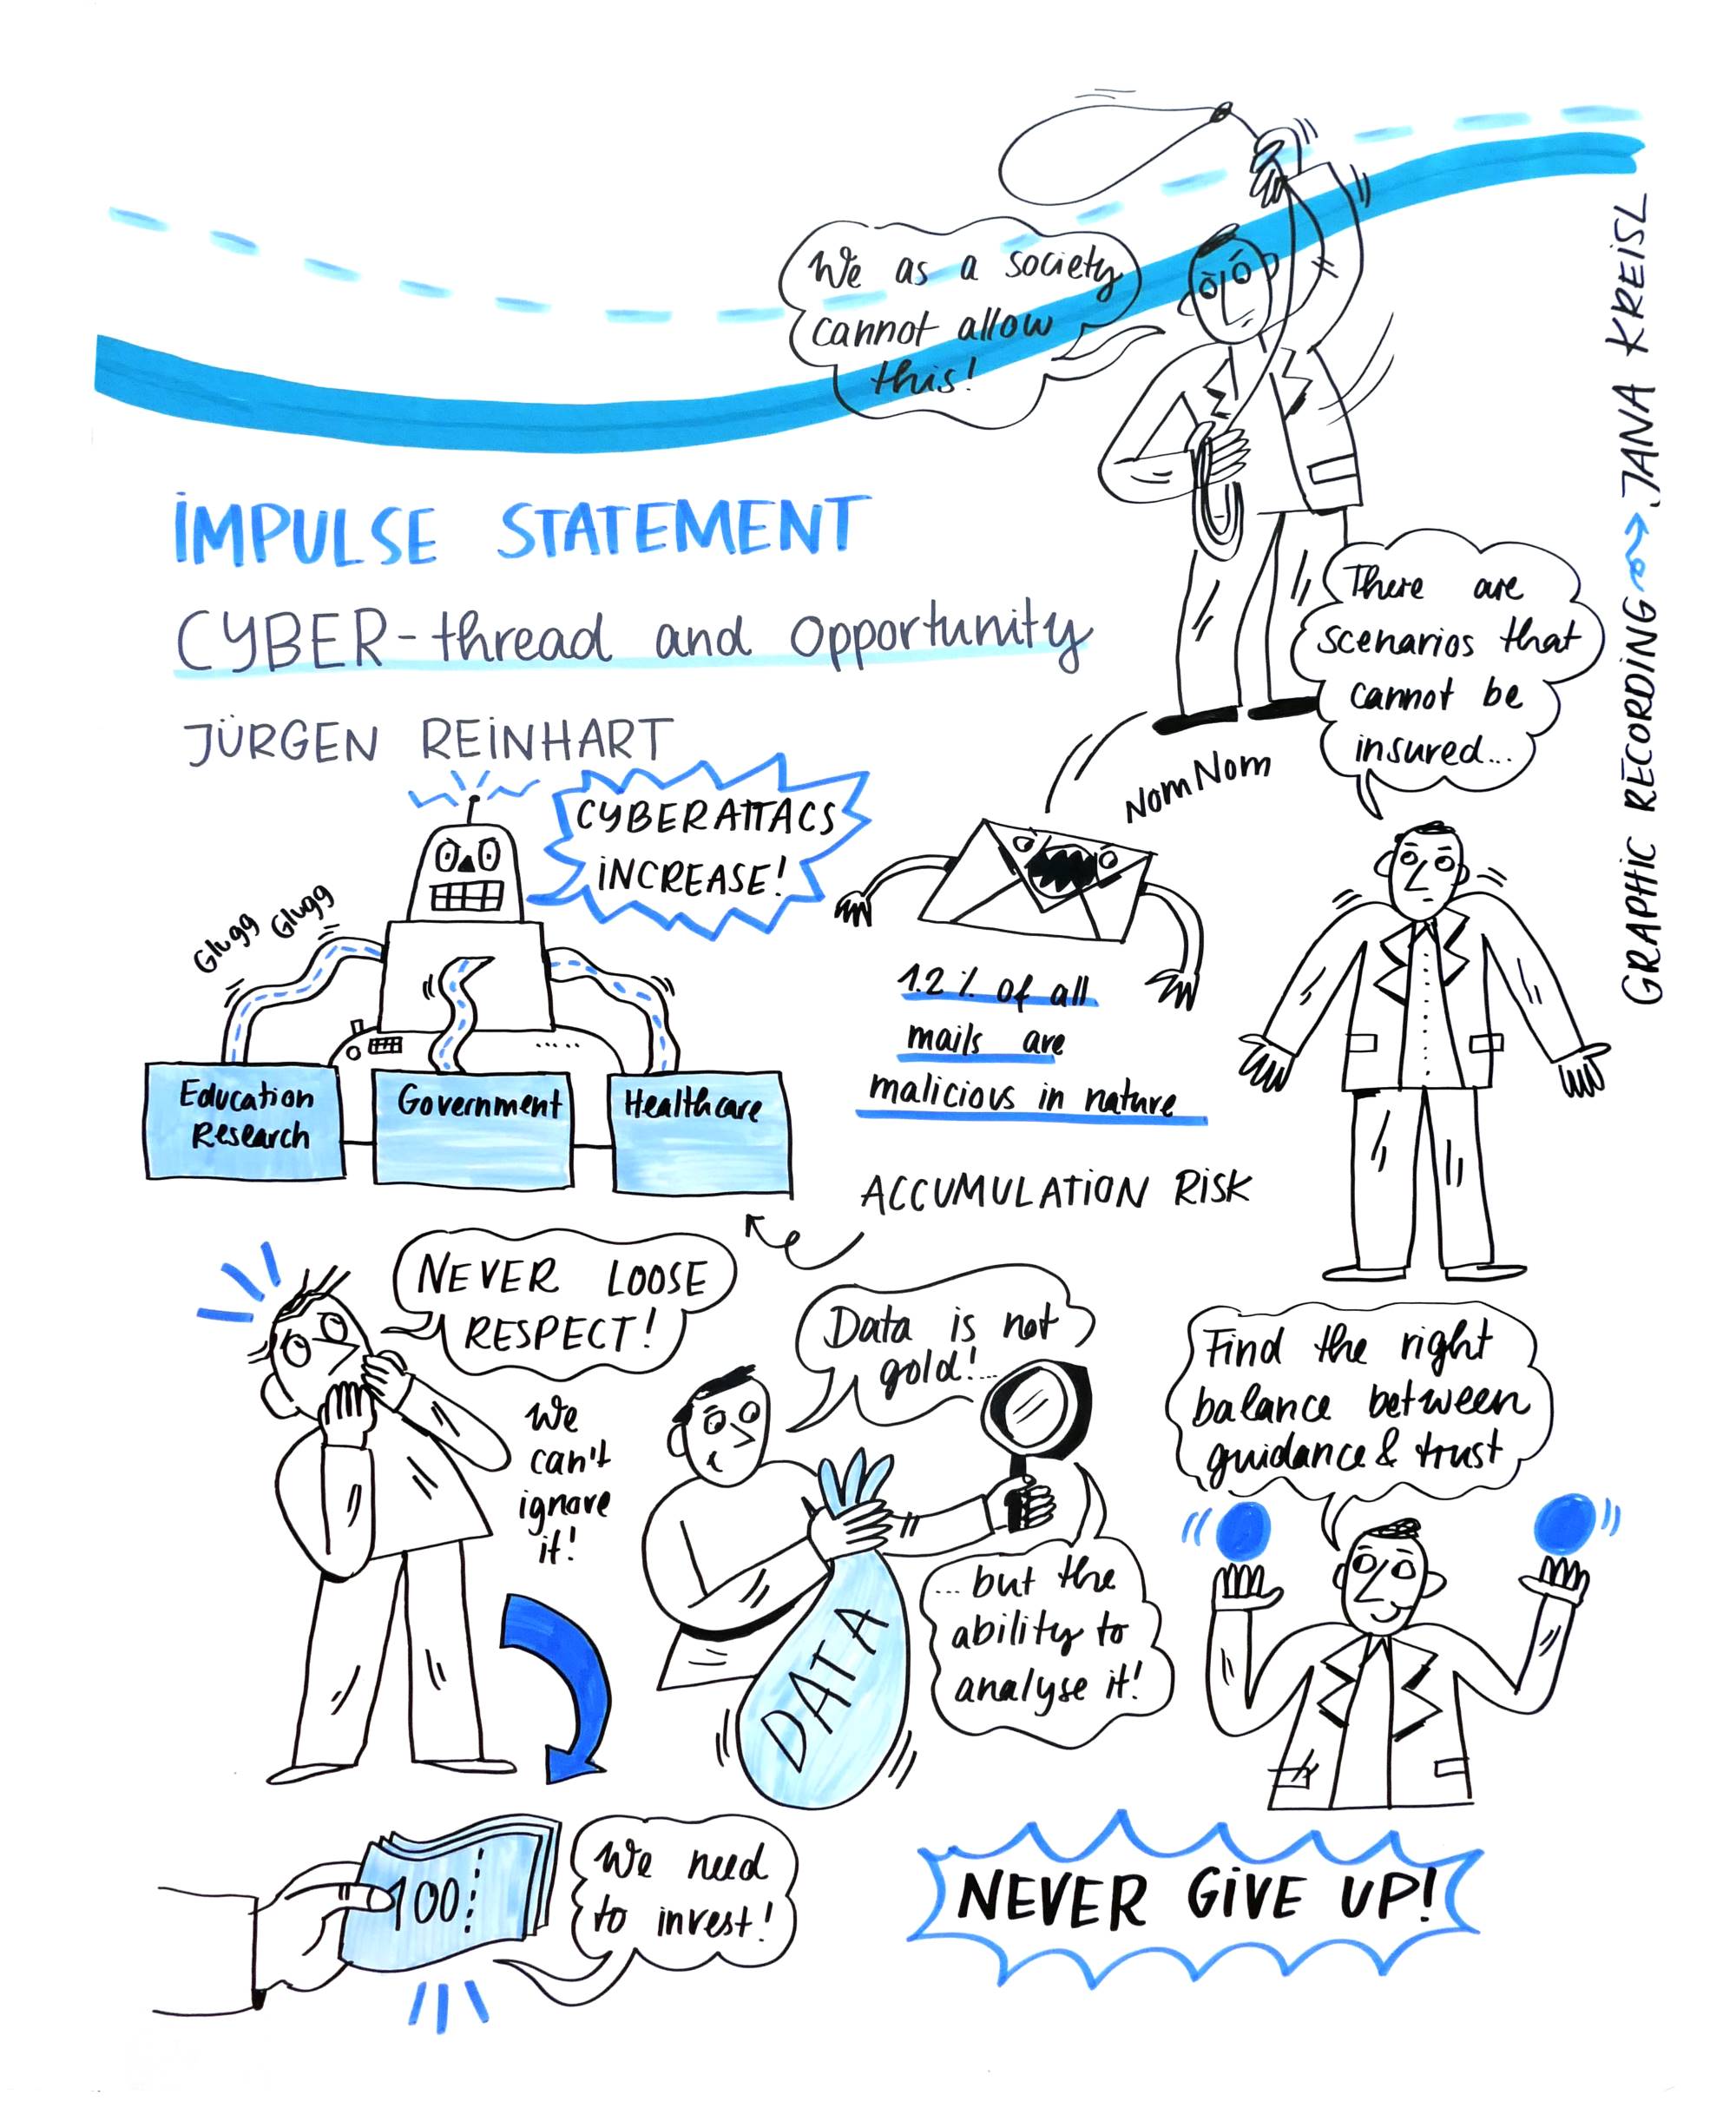 We as a society
cannot allow
this!
IMPULSE STATEMENT
CYBER-thread and Opportunity
JÜRGEN REINHART
There are
scenarios that
cannot be
insured...
CYBERATTACS
INCREASE!
Glugg Glugg
Education
Research
Government
Healthcare
Nom Nom
1.2% of all
mails are
malicious in nature
ACCUMULATION RISK
NEVER LOOSE
RESPECT!
We
can't
ignore
it!
Data is not
gold!...
DATA
... but the
ability to
analyse it!
Find the right
balance between
guidance & trust
100
We need
to invest!
NEVER GIVE UP!
GRAPHIC RECORDING JANA KREISL